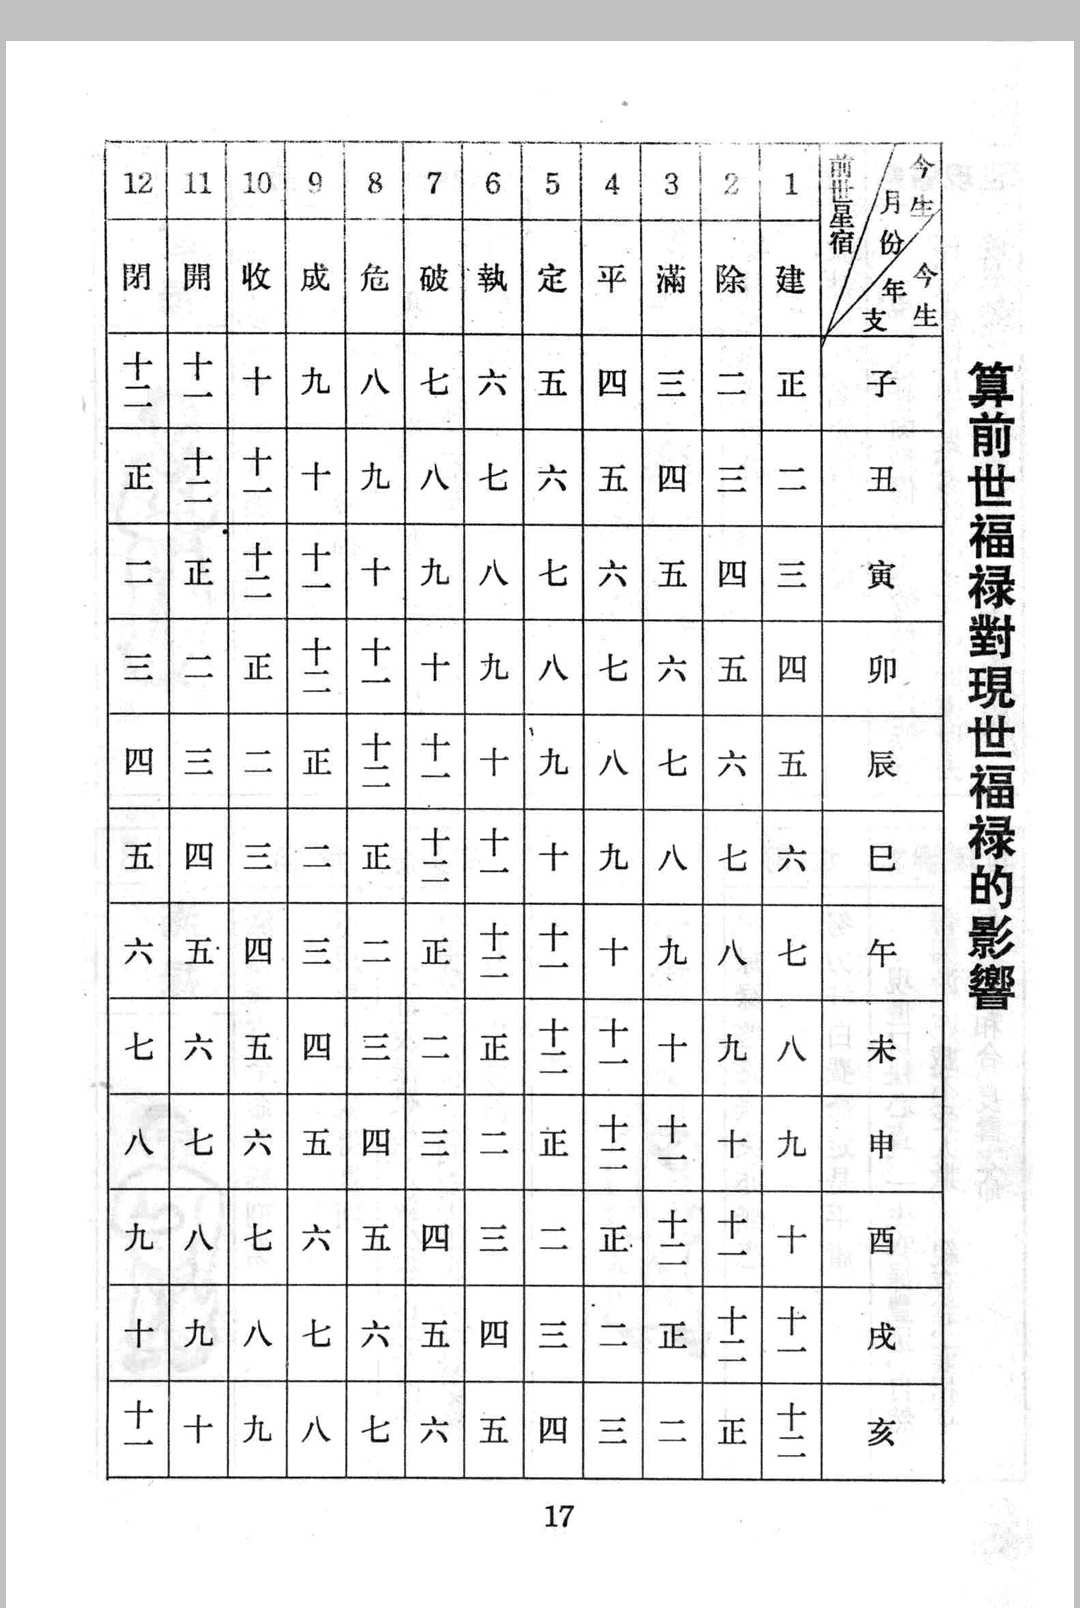 算前世福禄對現世福禄的影響
12 11 10 9 8 7 6 5 4 3 2 1 前世星宿 今生月份 今生年支
閉 開 收 成 危 破 執 定 平 滿 除 建
十二 十一 十 九 八 七 六 五 四 三 二 正 子
正 十二 十一 十 九 八 七 六 五 四 三 二 丑
二 正 十二 十一 十 九 八 七 六 五 四 三 寅
三 二 正 十二 十一 十 九 八 七 六 五 四 卯
四 三 二 正 十二 十一 十 九 八 七 六 五 辰
五 四 三 二 正 十二 十一 十 九 八 七 六 巳
六 五 四 三 二 正 十二 十一 十 九 八 七 午
七 六 五 四 三 二 正 十二 十一 十 九 八 未
八 七 六 五 四 三 二 正 十二 十一 十 九 申
九 八 七 六 五 四 三 二 正 十二 十一 十 酉
十 九 八 七 六 五 四 三 二 正 十二 十一 戌
十一 十 九 八 七 六 五 四 三 二 正 十二 亥
17